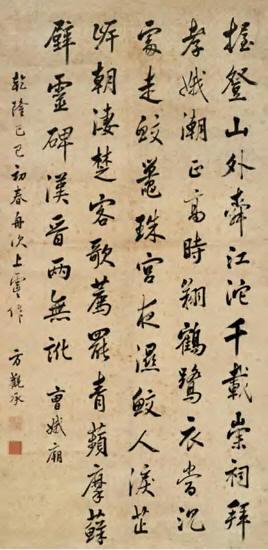 握登山外舜江沱千載崇祠拜
孝娥潮正高時翔鶴鷺衣當沉
處走蛟鼉珠宮夜濕鮫人淚芷
岸朝淒楚客歌薦罷青蘋摩蘚
壁靈碑漢晉兩無訛 曹娥廟
乾隆己巳初春舟次上虞作
方觀承